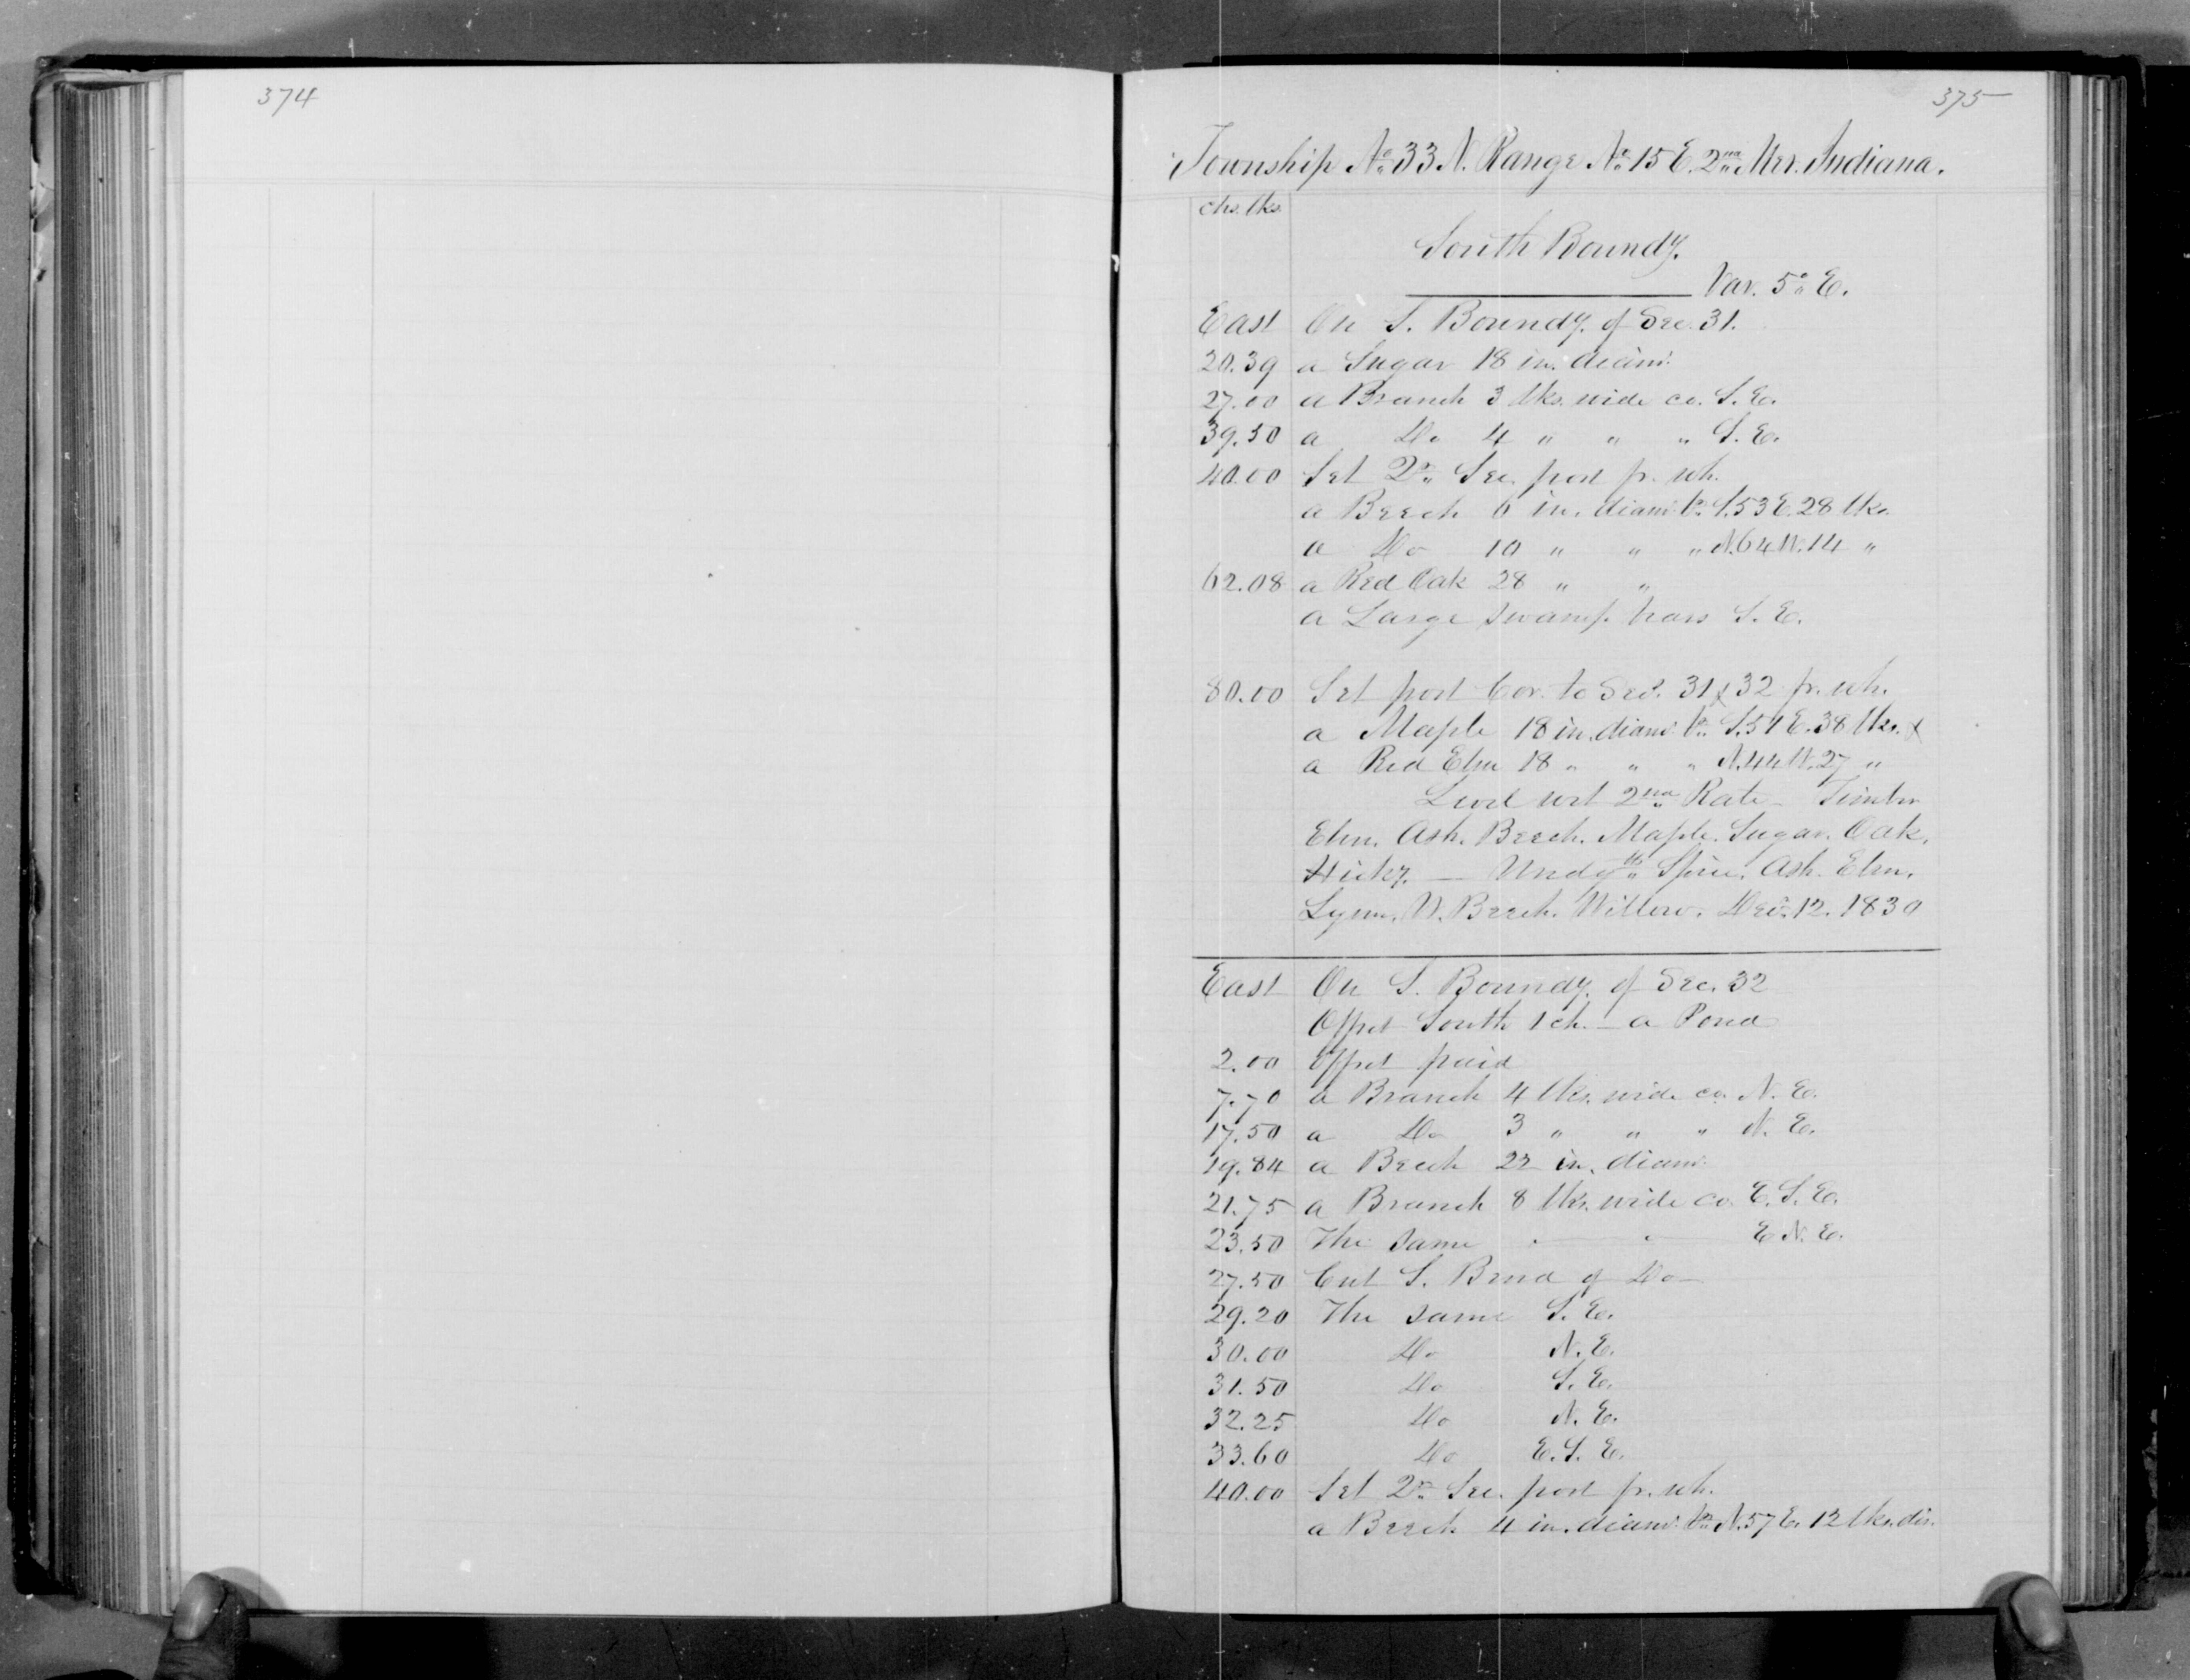 374
375
Township No. 33 N. Range No. 15 E. 2nd Mer. Indiana.
chs. lks.
South Boundy.
Var. 5° E.
East On S. Boundy. of Sec. 31.
20.39 a Sugar 18 in. diam.
27.00 a Branch 3 lks. wide co. S. E.
39.50 a Do 4 " " " S. E.
40.00 Set 2r. Sec. post fr. wh.
a Beech 6 in. diam. br. S. 53 E. 28 lks.
a Do 10 " " " N. 64 W. 14 "
62.08 a Red Oak 28 " "
a Large swamp bears S. E.
80.00 Set post Cor. to Secs. 31 & 32 fr. wh.
a Maple 18 in. diam. br. S. 51 E. 38 lks. &
a Red Elm 18 " " " N. 44 W. 27 "
Level wet 2nd Rate – Timber
Elm. Ash. Beech. Maple. Sugar. Oak.
Hicky. — Undgth. Spice. Ash. Elm.
Lynn. W. Beech. Willow. Dec. 12. 1839
East On S. Boundy. of Sec. 32
Offset South 1 ch. – a Pond
2.00 Offset paid
7.70 a Branch 4 lks. wide co. N. E.
17.50 a Do 3 " " " N. E.
19.84 a Beech 22 in. diam.
21.75 a Branch 8 lks. wide co. E. S. E.
23.50 The same " " E. N. E.
27.50 Cut S. Bend of Do
29.20 The same S. E.
30.00 Do N. E.
31.50 Do S. E.
32.25 Do N. E.
33.60 Do E. S. E.
40.00 Set 2r. Sec. post fr. wh.
a Beech 4 in. diam. br. N. 57 E. 12 lks. dis.